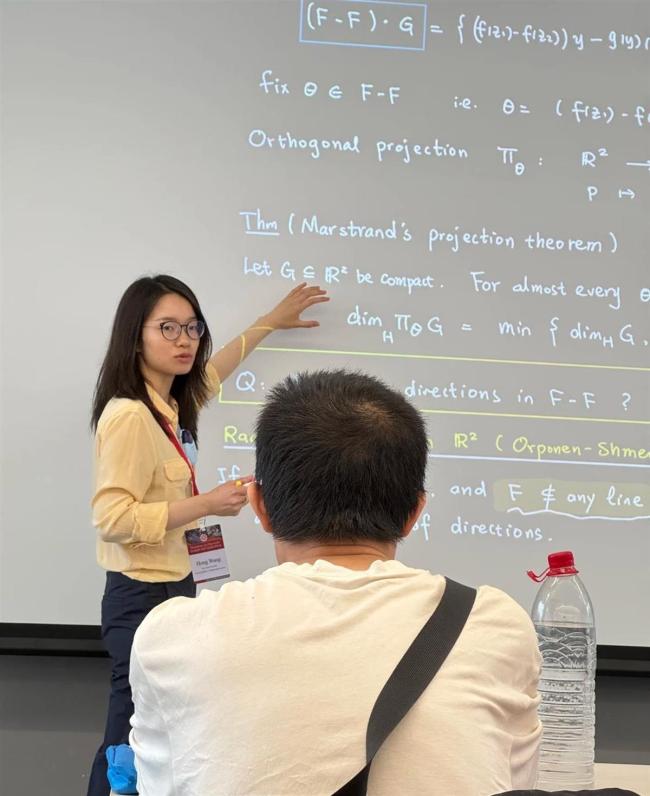 (F-F)·G = { (f(z₁)-f(z₂)) y - g(y)
fix θ ∈ F-F i.e. θ = (f(z₁) - f
Orthogonal projection π_θ : ℝ² →
P ↦
Thm (Marstrand's projection theorem)
Let G ⊆ ℝ² be compact. For almost every θ
dim_H π_θ G = min { dim_H G,
Q: directions in F-F ?
ℝ² (Orponen-Shme
If and F ⊄ any line
of directions.
Hong Wang